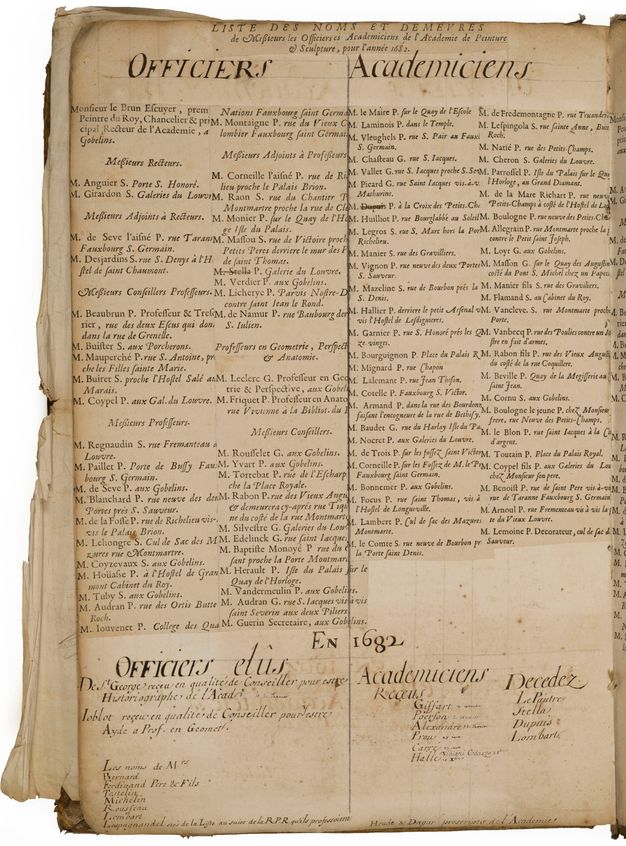 LISTE DES NOMS ET DEMEVRES
de Meßieurs les Officiers et Academiciens de l'Academie de Peinture
& Sculpture, pour l'année 1682.
OFFICIERS
Monsieur le Brun Escuyer, prem
Peintre du Roy, Chancelier & pri
cipal Recteur de l'Academie, a
Gobelins.
Meßieurs Recteurs.
M. Anguier S. Porte S. Honoré.
M. Girardon S. Galeries du Louvre
Meßieurs Adjoints à Recteurs.
M. de Seve l'aisné P. rue Taran
Fauxbourg S. Germain.
M. Desjardins S. rue S. Denys à l'H
stel de saint Chaumont.
Meßieurs Conseillers Professeurs.
M. Beaubrun P. Professeur & Tres
rier, rue des deux Escus qui don
dans la rue de Grenelle.
M. Buister S. aux Porcherons.
M. Mauperché P. rue S. Antoine, pr
che les Filles sainte Marie.
M. Buiret S. proche l'Hostel Salé au
Marais.
M. Coypel P. aux Gal. du Louvre.
Meßieurs Professeurs.
M. Regnaudin S. rue Fremanteau
Louvre.
M. Paillet P. Porte de Bussy Fau
bourg S. Germain.
M. de Seve P. aux Gobelins.
M. Blanchard P. rue neuve des deu
Portes prés S. Sauveur.
M. de la Fosse P. rue de Richelieu vis-
vis le Palais Brion.
M. Lehongre S. Cul de Sac des M
zures rue Montmartre.
M. Coyzevaux S. aux Gobelins.
M. Hoüasse P. à l'Hostel de Gran
mont Cabinet du Roy.
M. Tuby S. aux Gobelins.
M. Audran P. rue des Ortis Butte
Roch.
M. Iouvenet P. College des Qua
Nations Fauxbourg saint Germa
M. Montaigne P. rue du Vieux C
lombier Fauxbourg saint Germai
Meßieurs Adjoints à Professeurs
M. Corneille l'aisné P. rue de Ri
lieu proche le Palais Brion.
M. Raon S. rue du Chantier
Montmartre proche la rue de Cle
M. Monier P. sur le Quay de l'Ho
ge Isle du Palais.
M. Massou S. rue de Victoire proch
Petits Peres derriere le mur des F
de saint Thomas.
M. Stella P. Galerie du Louvre.
M. Verdier P. aux Gobelins.
M. Licherye P. Parvis Nostre-D
contre saint Jean le Rond.
M. de Namur P. rue Baubourg der
S. Iulien.
Professeurs en Geometrie, Perspect
& Anatomie.
M. Leclerc G. Professeur en Geo
trie & Perspective, aux Gobel
M. Friquet P. Professeur en Anato
rue Vivienne à la Bibliot. du
Meßieurs Conseillers.
M. Rousselet G. aux Gobelins.
M. Yvart P. aux Gobelins.
M. Tortebat P. rue de l'Escharp
che la Place Royale.
M. Rabon P. rue des Vieux Augu
& demeurera aprés rue Tiq
ne du costé de la rue Montmartre
M. Silvestre G. Galeries du Lou
M. Edelinck G. rue saint Jacques
M. Baptiste Monoyé P. rue du
sant proche la Porte Montmar
M. Herault P. Isle du Palais sur le
Quay de l'Horloge.
M. Vandermeulin P. aux Gobelins.
M. Audran G. rue S. Iacques vis à vis
saint Severin aux deux Piliers
M. Guerin Secretaire, aux Gobelins.
Academiciens
M. le Maire P. sur le Quay de l'Escole
M. Laminois P. dans le Temple.
M. Vleughels P. rue S. Pair au Fauxb
S. Germain.
M. Chasteau G. rue S. Iacques.
M. Vallet G. rue S. Iacques proche S. Sev
M. Picard G. rue Saint Iacques vis-à-v
Mathurins.
M. Dupuis P. à la Croix des Petits-Ch
M. Huilliot P. rue Bourglabbé au Soleil
M. Legros S. rue S. Marc hors la Por
Richelieu.
M. Manier S. rue des Gravilliers.
M. Vignon P. rue neuve des deux Portes
Sauveur.
M. Mazeline S. rue de Bourbon prés la
S. Denis.
M. Hallier P. derriere le petit Arsenal v
vis l'Hostel de Lesdiguieres.
M. Garnier P. rue S. Honoré prés les Q
ze vingts.
M. Bourguignon P. Place du Palais R
M. Mignard P. rue Chapon
M. Lalemant P. rue Jean Tison.
M. Cotelle P. Fauxbourg S. Victor.
M. Armand P. dans la rue des Bourdon
faisant l'encogneure de la rue de Bethisy.
M. Baudet G. rue du Harlay Isle du Pa
M. Nocret P. aux Galeries du Louvre.
M. de Trois P. sur les fossez saint Victor
M. Corneille P. sur les Fossez de M. le P
Fauxbourg saint Germain.
M. Bonnemer P. aux Gobelins.
M. Focus P. rue saint Thomas, vis à
l'Hostel de Longueville.
M. Lambert P. Cul de sac des Mazures
Montmartre.
M. le Comte S. rue neuve de Bourbon pr
la Porte saint Denis.
M. de Fredemontagne P. rue Truander
M. Lespingola S. rue sainte Anne, Butt
Roch.
M. Natié P. rue des Petits-Champs.
M. Cheron S. Galeries du Louvre.
M. Parrossel P. Isle du Palais sur le Qu
l'Horloge, au Grand Diamant.
M. de la Mare Richart P. rue neuve
Petits-Champs à costé de l'Hostel de L
M. Boulogne P. rue neuve des Petits-Cha
M. Allegrain P. rue Montmartre proche la
contre le Petit saint Joseph.
M. Loyr G. aux Gobelins.
M. Masson G. sur le Quay des Augustin
costé du Pont S. Michel chez un Papeti
M. Manier fils S. rue des Gravilliers.
M. Flamand S. au Cabinet du Roy.
M. Vancleve. S. rue Montmartre proche
Porte.
M. Vanbecq P. rue des Poulies contre un M
stre en fait d'armes.
M. Rabon fils P. rue des Vieux Augus
du costé de la rue Coquillere.
M. Beville P. Quay de la Megisserie au
saint Jean.
M. Cornu S. aux Gobelins.
M. Boulogne le jeune P. chez Monsieur
frere, rue Neuve des Petits-Champs.
M. le Blon P. rue saint Iacques à la C
d'argent.
M. Toutain P. Place du Palais Royal.
M. Coypel fils P. aux Galeries du Lou
chez Monsieur son pere.
M. Benoist P. rue de saint Pere vis à-v
rue de Taranne Fauxbourg S. Germain
M. Arnoul P. rue Frementeau vis à vis la
te du Vieux Louvre.
M. Lemoine P. Decorateur, cul de sac d
Sauveur.
EN 1682
OFFICIERS elûs
De St George reçu en qualité de Conseiller pour estre
Historiographe de l'Acad.
Ioblot reçu en qualité de Conseiller pour estre
Ayde a Prof. en Geomet.
Les noms de Mrs
Bernard
Ferdinand Pere & Fils
Testelin
Michelin
Rousseau
Lombart
Lespagnandel osté de la Liste au sujet de la R.P.R. qu'ils professoient
Academiciens
Reçus
Giffart
Poerson
Alexandre
Prou
Carré
Hallé
Decedez
Le Pautre
Stella
Dupuis
Lombart